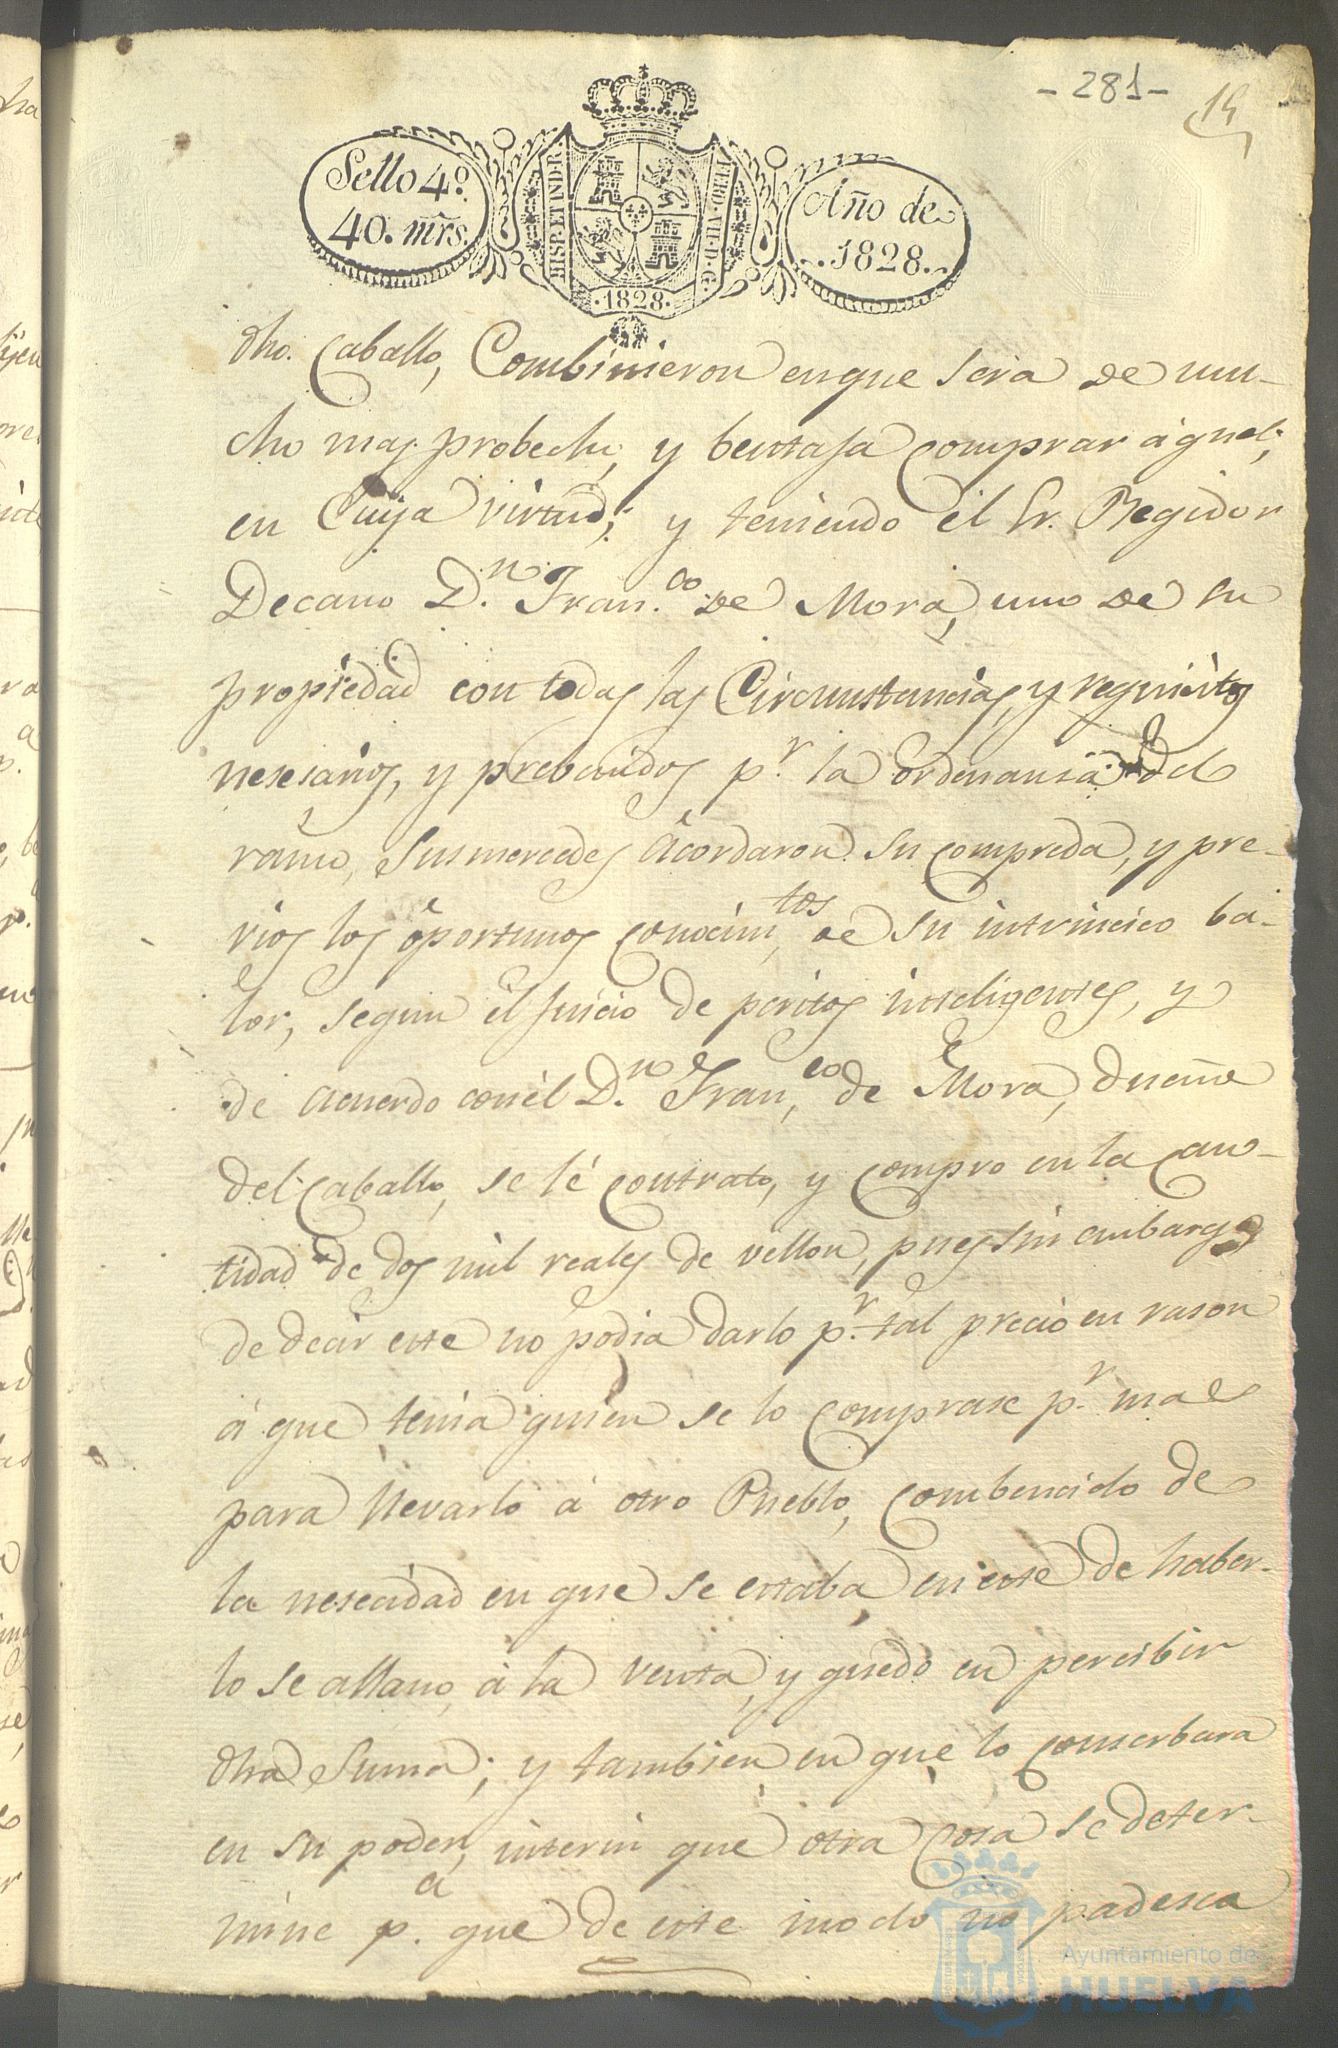 - 281 -
15
Sello 4º.
40. mrs.
HISP. ET IND. R.
FERD. VII. D. G.
.1828.
Año de
1828.
dho. Caballo, Combinieron en que sera de mu-
cho mas probecho, y bentaja comprar aquel;
en Cuija virtud; y teniendo el Sr. Regidor
Decano D.n Fran.co de Mora, uno de su
propiedad con todas las Circunstancias, y requicitos
nesesarios, y prebenidos p.r la ordenansa del
ramo, Susmercedes Acordaron su compreda, y pre-
vios los oportunos conocim.tos de su intrincico ba-
lor, segun el juicio de peritos inteligentes, y
de acuerdo con el D.n Fran.co de Mora, dueño
del Caballo, se le contrato, y compro en la can-
tidad de dos mil reales de vellon, pues sin embargo
de decir este no podia darlo p.r tal precio en rason
á que tenia quien se lo comprase p.r mas
para llevarlo á otro Pueblo, combencido de
la nesecidad en que se estaba en este de haber-
lo se allano á la venta, y quedó en percibir
dha Suma; y tambien en que lo conserbara
en su poder, interin que otra Cosa se deter-
mine p.a que de este modo no padesca
Ayuntamiento de
HUELVA